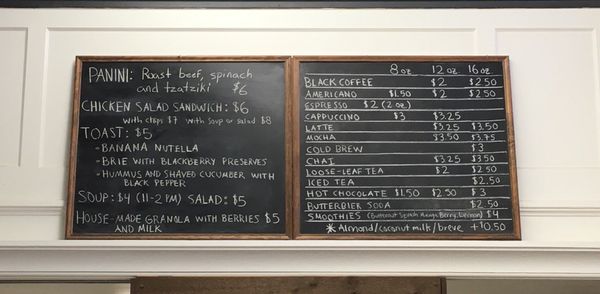 PANINI: Roast beef, spinach
and tzatziki $6
CHICKEN SALAD SANDWICH: $6
with chips $7 with soup or salad $8
TOAST: $5
- BANANA NUTELLA
- BRIE WITH BLACKBERRY PRESERVES
- HUMMUS AND SHAVED CUCUMBER WITH
BLACK PEPPER
SOUP: $4 (11-2 PM) SALAD: $5
HOUSE-MADE GRANOLA WITH BERRIES $5
AND MILK
8 oz. 12 oz. 16 oz.
BLACK COFFEE $2 $2.50
AMERICANO $1.50 $2 $2.50
ESPRESSO $2 (2 oz)
CAPPUCCINO $3 $3.25
LATTE $3.25 $3.50
MOCHA $3.50 $3.75
COLD BREW $3
CHAI $3.25 $3.50
LOOSE-LEAF TEA $2 $2.50
ICED TEA $2.50
HOT CHOCOLATE $1.50 $2.50 $3
BUTTERBIER SODA $2.50
SMOOTHIES Mango, Berry, $4
* Almond/coconut milk/breve +$0.50